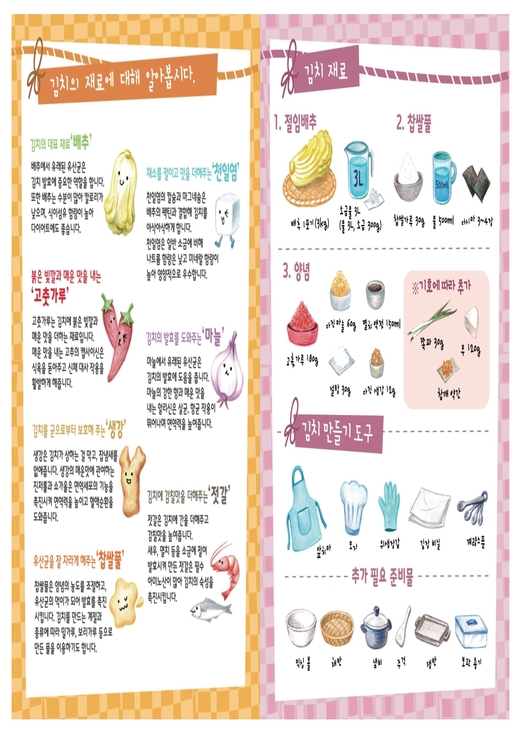 김치의 재료에 대해 알아봅시다.
김치의 대표 재료 '배추'
배추에서 유래된 유산균은
김치 발효에 중요한 역할을 합니다.
또한 배추는 수분이 많아 칼로리가
낮으며, 식이섬유 함량이 높아
다이어트에도 좋습니다.
채소를 절이고 맛을 더해주는 '천일염'
천일염의 칼슘과 마그네슘은
배추의 펙틴과 결합해 김치를
아삭아삭하게 합니다.
천일염은 일반 소금에 비해
나트륨 함량은 낮고 미네랄 함량이
높아 영양적으로 우수합니다.
붉은 빛깔과 매운 맛을 내는
'고춧가루'
고춧가루는 김치에 붉은 빛깔과
매운 맛을 더하는 재료입니다.
매운 맛을 내는 고추의 캡사이신은
식욕을 돋아주고 신체 대사 작용을
활발하게 해줍니다.
김치의 발효를 도와주는 '마늘'
마늘에서 유래된 유산균은
김치의 발효에 도움을 줍니다.
마늘의 강한 향과 매운 맛을
내는 알리신은 살균, 항균 작용이
뛰어나며 면역력을 높여줍니다.
김치를 균으로부터 보호해 주는 '생강'
생강은 김치가 상하는 걸 막고, 잡냄새를
없애줍니다. 생강의 매운맛에 관여하는
진저롤과 쇼가올은 면역세포의 기능을
촉진시키며 면역력을 높이고 혈액순환을
도와줍니다.
김치에 감칠맛을 더해주는 '젓갈'
젓갈은 김치에 간을 더해주고
감칠맛을 높여줍니다.
새우, 멸치 등을 소금에 절여
발효시켜 만든 젓갈은 필수
아미노산이 많아 김치의 숙성을
촉진시킵니다.
유산균을 잘 자라게 해주는 '찹쌀풀'
찹쌀풀은 양념의 농도를 조절하고,
유산균의 먹이가 되어 발효를 촉진
시킵니다. 김치를 만드는 계절과
종류에 따라 밀가루, 보리가루 등으로
만든 풀을 이용하기도 합니다.
김치 재료
1. 절임배추
2. 찹쌀풀
3L
500ml
배추 1포기(3kg)
소금물 3L
(물 3L, 소금 300g)
찹쌀가루 30g
물 500ml
다시마 3~4장
3. 양념
※기호에 따라 추가
고춧가루 180g
다진마늘 60g
멸치액젓 150ml
설탕 30g
다진 생강 12g
쪽파 30g
무 120g
참깨 약간
김치 만들기 도구
앞치마
모자
위생장갑
김장 비닐
계량스푼
추가 필요 준비물
믹싱볼
채반
냄비
주걱
쟁반
보관 용기